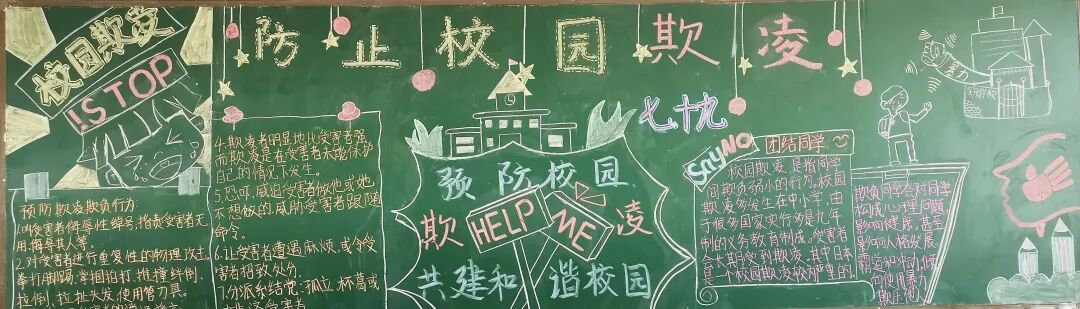 防止校园欺凌
校园欺凌
!STOP
预防欺凌欺负行为
1.叫受害者侮辱性绰号,指责受害者无
用,侮辱其人等。
2.对受害者进行重复性的物理攻击
拳打脚踢、掌掴拍打、推撞绊倒、
拉倒、拉扯头发,使用管刀具。
4.欺凌者明显地比受害者强,
而欺凌是在受害者未能保护
自己的情况下发生。
5.恐吓、威迫受害者做他或她
不想做的,威胁受害者跟随
命令。
6.让受害者遭遇麻烦,或令受
害者招致处分。
7.分派系结党:孤立、杯葛或
预防校园
欺 HELP ME 凌
共建和谐校园
七十九
Say NO
团结同学
校园欺凌,是指同学
间欺负弱小的行为。校园
欺凌多发生在中小学,由
于很多国家实行多是九年
制的义务教育制成,受害者
会长期受到欺凌,其中日本
是一个校园欺凌较为严重的
欺负同学会对同学
构成心理问题
影响健康,甚至
影响人格发展。